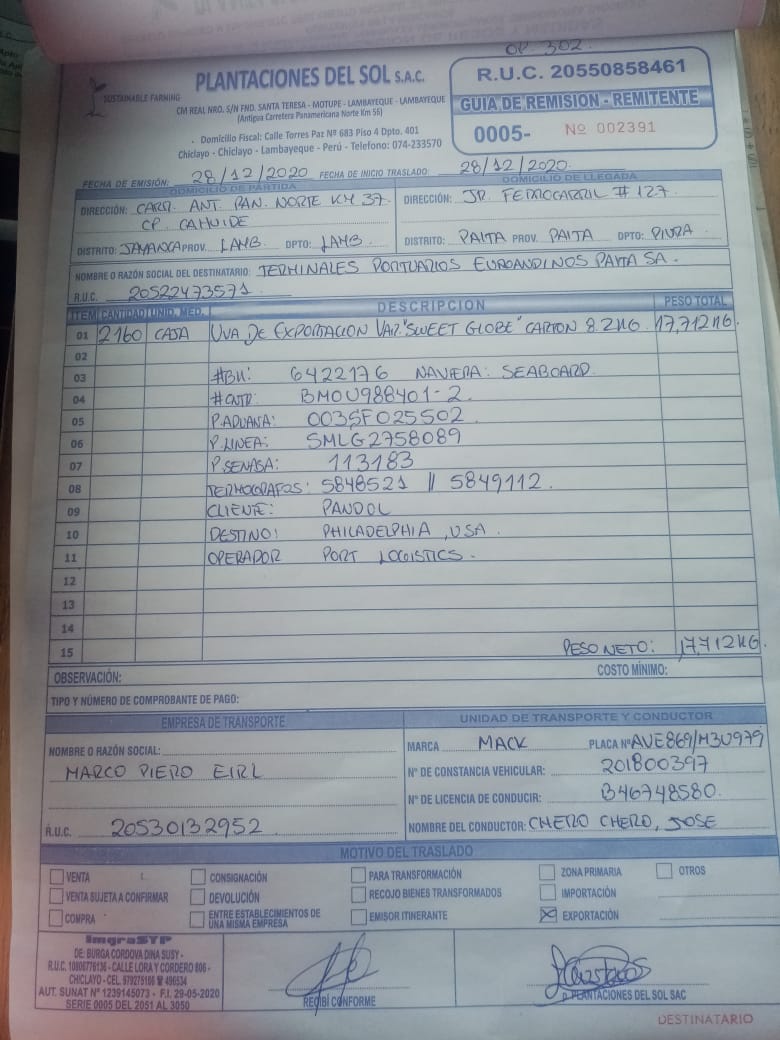 OP. 302
SUSTAINABLE FARMING
PLANTACIONES DEL SOL S.A.C.
CM REAL NRO. S/N FND. SANTA TERESA - MOTUPE - LAMBAYEQUE - LAMBAYEQUE
(Antigua Carretera Panamericana Norte Km 56)
Domicilio Fiscal: Calle Torres Paz Nº 683 Piso 4 Dpto. 401
Chiclayo - Chiclayo - Lambayeque - Perú - Telefono: 074-233570
R.U.C. 20550858461
GUIA DE REMISION - REMITENTE
0005- Nº 002391
FECHA DE EMISIÓN: 28/12/2020 FECHA DE INICIO TRASLADO: 28/12/2020
DOMICILIO DE PARTIDA
DIRECCIÓN: CARR. ANT. PAN. NORTE KM 37
CP. CAHUIDE
DISTRITO: JAYANCA PROV. LAMB. DPTO: LAMB.
DOMICILIO DE LLEGADA
DIRECCIÓN: JR. FERROCARRIL # 127
DISTRITO: PAITA PROV. PAITA DPTO: PIURA
NOMBRE O RAZÓN SOCIAL DEL DESTINATARIO: TERMINALES PORTUARIOS EUROANDINOS PAYTA SA.
R.U.C. 20522473571
ITEM CANTIDAD UNID. MED. DESCRIPCION PESO TOTAL
01 2160 CAJA UVA DE EXPORTACION VAR. "SWEET GLOBE" CARTON 8.2KG 17,712KG.
02
03 #BK: 6422176 NAVIERA: SEABOARD.
04 #CNTD: BMOU988401-2.
05 P.ADUANA: 003SF025502
06 P.LINEA: SMLG2758089
07 P.SENASA: 113183
08 TERMOGRAFOS: 5848521 // 5849112.
09 CLIENTE: PANDOL
10 DESTINO: PHILADELPHIA, USA.
11 OPERADOR PORT LOGISTICS.
12
13
14
15 PESO NETO: 17,712KG.
OBSERVACIÓN: COSTO MÍNIMO:
TIPO Y NÚMERO DE COMPROBANTE DE PAGO:
EMPRESA DE TRANSPORTE
NOMBRE O RAZÓN SOCIAL:
MARCO PIERO EIRL
R.U.C. 20530132952
UNIDAD DE TRANSPORTE Y CONDUCTOR
MARCA MACK PLACA Nº AVE869/M3U979
Nº DE CONSTANCIA VEHICULAR: 201800397
Nº DE LICENCIA DE CONDUCIR: B46748580.
NOMBRE DEL CONDUCTOR: CHERO CHERO, JOSE
MOTIVO DEL TRASLADO
VENTA CONSIGNACIÓN PARA TRANSFORMACIÓN ZONA PRIMARIA OTROS
VENTA SUJETA A CONFIRMAR DEVOLUCIÓN RECOJO BIENES TRANSFORMADOS IMPORTACIÓN
COMPRA ENTRE ESTABLECIMIENTOS DE UNA MISMA EMPRESA EMISOR ITINERANTE EXPORTACIÓN
ImgraSYP
DE: BURGA CORDOVA DINA SUSY -
R.U.C. 10806776136 - CALLE LORA Y CORDERO 806 -
CHICLAYO - CEL. 979275166 ☎ 496534
AUT. SUNAT Nº 1239145073 - F.I. 29-05-2020
SERIE 0005 DEL 2051 AL 3050
RECIBÍ CONFORME
p. PLANTACIONES DEL SOL SAC
DESTINATARIO